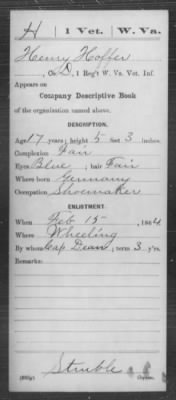 H | 1 Vet. | W. Va.
Henry Hoffer
, Co. D, 1 Reg't W. Va. Vet. Inf.
Appears on
Company Descriptive Book
of the organization named above.
DESCRIPTION.
Age 17 years; height 5 feet 3 inches.
Complexion Fair
Eyes Blue; hair Fair
Where born Germany
Occupation Shoemaker
ENLISTMENT.
When Feb 15, 1864
Where Wheeling
By whom Cap Dean; term 3 y'rs.
Remarks:
Struble
Copyist.